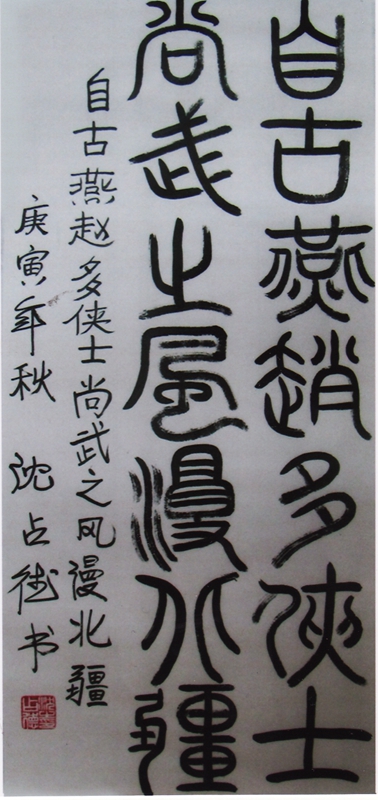 自古燕趙多俠士
尚武之風漫北疆
自古燕赵多侠士尚武之风漫北疆
庚寅年秋 沈占德书